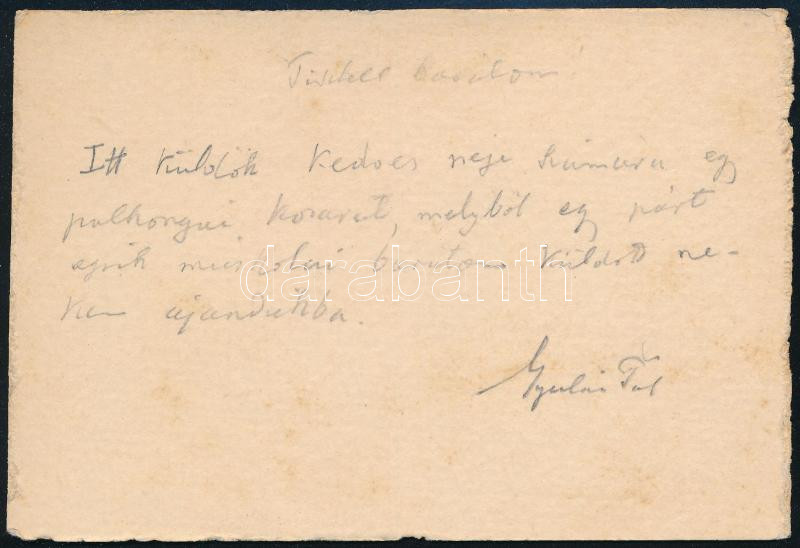 Tisztelt barátom!
Itt küldök kedves neje számára egy
kosarat, melyből egy párt
egyik miskolci barátom küldött ne-
kem ajándékba.
Gyulai Pál
darabanth